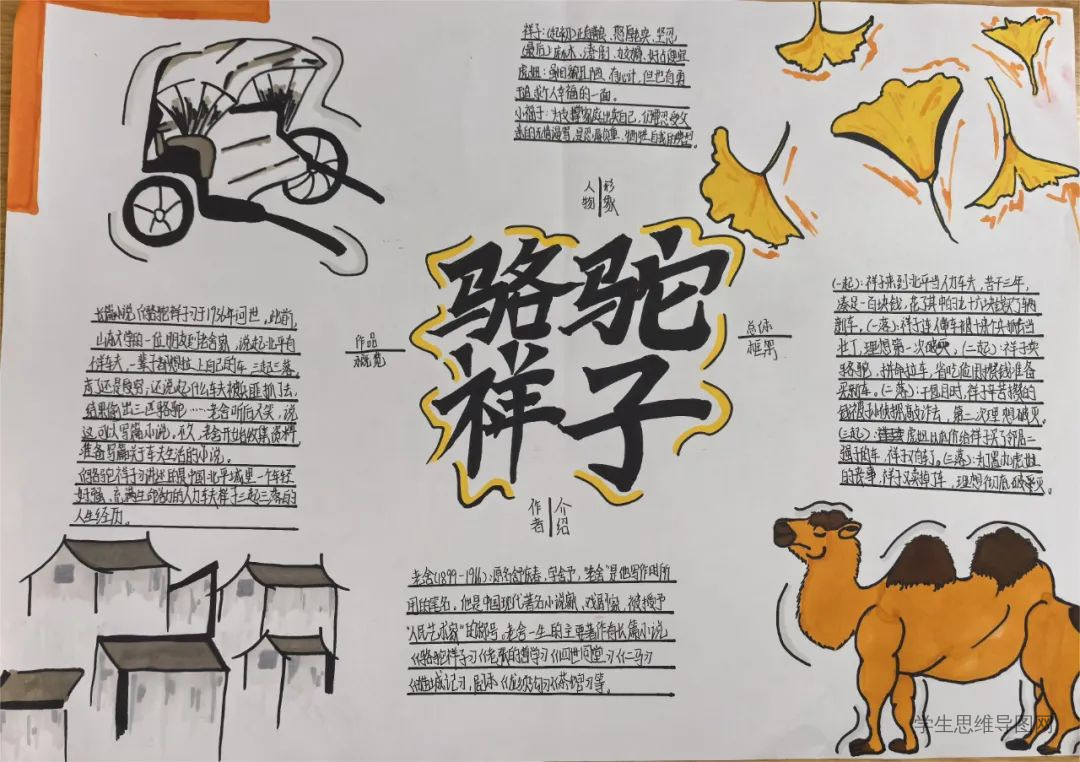 祥子:(起初)正直善良、憨厚老实、坚忍
(最后)麻木、潦倒、狡猾、好占便宜
虎妞:泼辣、有心计,但也有勇
于追求个人幸福的一面。
小福子:为支撑家庭出卖自己,仍需忍受父
亲的
人物
形象
骆驼
祥子
作品
概览
总体
框架
作者
介绍
长篇小说《骆驼祥子》于1936年问世,此前,
山东大学的一位朋友到老舍家,说起北平有
位车夫,一辈子都想拉上自己的车,三起三落,
还说起什么车夫被乱匪抓了去,
结果偷出三匹骆驼……老舍听后大笑,说
这可以写篇小说,不久,老舍开始收集资料
准备写篇关于车夫生活的小说。
《骆驼祥子》讲述的是中国北平城里一个年轻
好强、充满生命力的人力车夫祥子三起三落的
人生经历。
(一起):祥子来到北平当人力车夫,苦干三年,
凑足一百块钱,花了其中的九十六块钱买了辆
新车。(一落):祥子连人带车被十来个兵捉去当
壮丁,理想第一次破灭。(二起):祥子卖
骆驼,拼命拉车,省吃俭用攒钱准备
买新车。(二落):干包月时,祥子辛苦攒的
钱被孙侦探敲诈去,第二次理想破灭。
(三起):虎妞以低价给祥子买了邻居二
强子的车,祥子又有车了。(三落):为了置办虎妞
的丧事,祥子又卖掉了车,理想彻底破灭。
老舍(1899-1966):原名舒庆春,字舍予,"老舍"是他写作时所
用的笔名,他是中国现代著名小说家,戏剧家,被授予
"人民艺术家"的称号。老舍一生的主要著作有长篇小说
《骆驼祥子》《老张的哲学》《四世同堂》《二马》
《猫城记》,剧本《龙须沟》《茶馆》等。
学生思维导图网